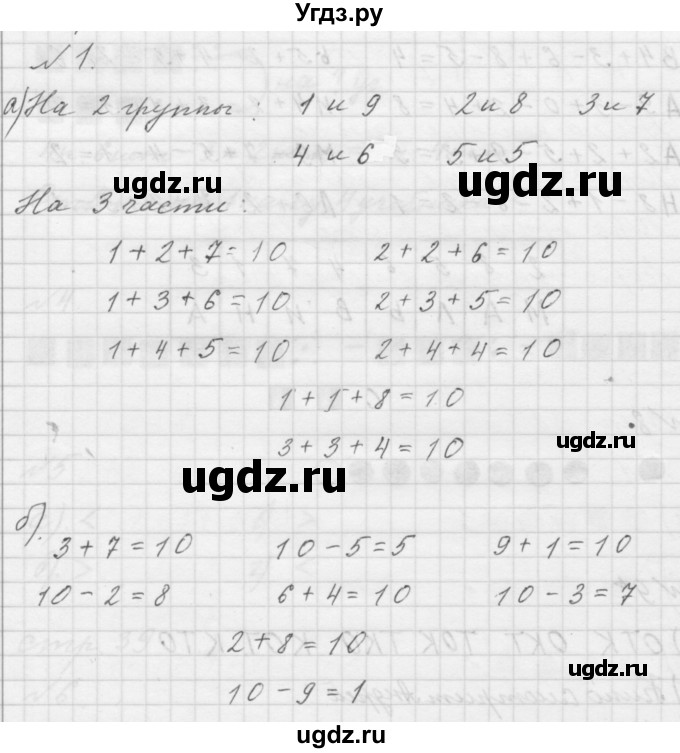 Угдз.ру
№ 1.
а) На 2 группы: 1 и 9 2 и 8 3 и 7
4 и 6 5 и 5
ugdz.ru ugdz.ru
На 3 части:
1 + 2 + 7 = 10 2 + 2 + 6 = 10
1 + 3 + 6 = 10 2 + 3 + 5 = 10
1 + 4 + 5 = 10 2 + 4 + 4 = 10
1 + 1 + 8 = 10
3 + 3 + 4 = 10
ugdz.ru
ugdz.ru
б).
3 + 7 = 10 10 - 5 = 5 9 + 1 = 10
10 - 2 = 8 6 + 4 = 10 10 - 3 = 7
2 + 8 = 10
ugdz.ru
10 - 9 = 1
ugdz.ru